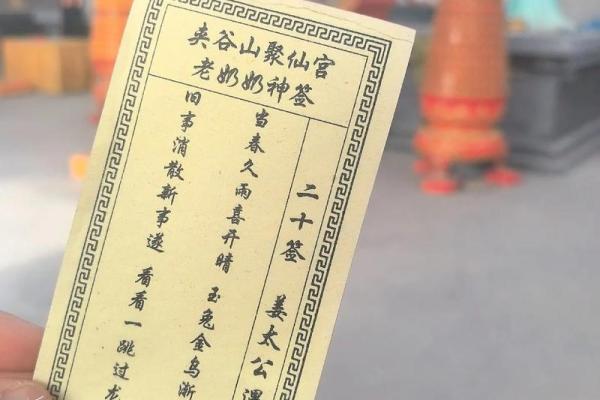 夹谷山聚仙宫
老奶奶神签
二十签 姜太公遇
当春久雨喜开晴 玉兔金乌渐
旧事消散新事遂 看看一跳过龙